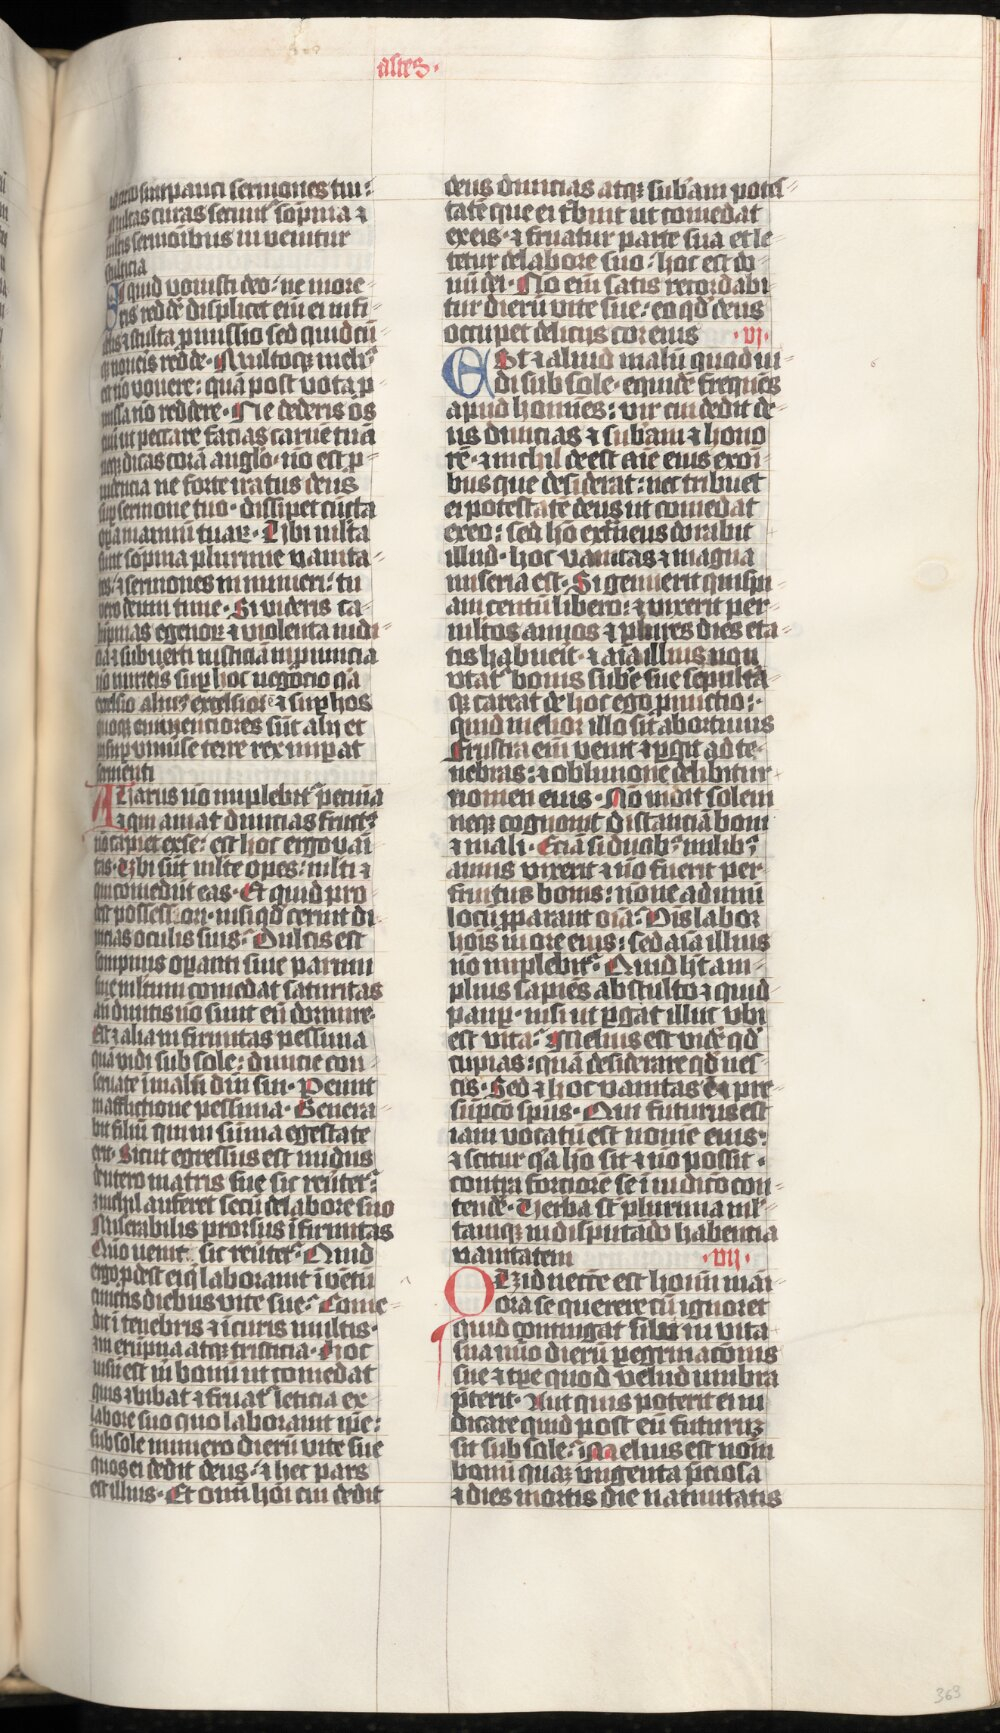 astes·
idcirco sint pauci sermones tui:
multas curas secunt᷒ sōpnia ⁊
multis sermōibus inuenitur
stulticia
Si quid vouisti deo: ne more-
ris redde᷒ displicet ein̄ ei infi-
delis ⁊ stulta p̄missio sed quidcū
q̨ voueris redde· Multoq̨ meli᷒
est nō vouere: quā post vota p-
missa nō reddere· Ne dederis os
tuū ut peccare facias carnē tuā
neq̨ dicas corā anglo· nō est p-
uidencia ne forte iratus deus
sup sermone tuo· dissipet cūcta
oꝑa manuū tuaꝝ· Vbi ml̄ta
sunt sōpnia plurime vanita-
tes: ⁊ sermones innumeri: tu
vero deum time· Si videris ca-
lūpnias egenoꝝ ⁊ violenta iudi-
cia ⁊ subuerti iusticiā in ꝓuincia
nō mireris sup hoc negocio q̄a
excelso alius excelsior ē ⁊ sup hos
quoq̨ eminenciores sūt alij et
insup vniūse terre rex imꝑat
seruienti
Auarus nō implebit᷒ pecunia
⁊ qui amat diuicias fruct᷒
nō capiet ex se: est hoc ergo vāi
tas· Vbi sūt ml̄te opes: ml̄ti ⁊
qui comedūt eas· Et quid pro
dest possessori· nisi qd̄ cernit di
uicias oculis suis: Dulcis est
sompnus oꝑanti siue parum
siue ml̄tum comedat saturitas
aū diuitis nō sinit eū dormire·
Est ⁊ alia infirmitas pessima
quā vidi sub sole: diuicie con-
seruate ī malū dn̄i sui· Pereunt
in afflictione pessima· Genera-
uit filiū qui in sūma egestate
erit· Sicut egressus est nudus
de utero matris sue sic reūtet᷒:
⁊ nichil auferet secū de labore suo
Miserabilis prorsus īfirmitas
Quō venit· sic reūtet᷒· Quid
ergo ꝓdest ei q̨ laborauit ī ventū
cunctis diebus vite sue: Come-
dit ī tenebris ⁊ ī curis multis·
in erūpna atq̨ tristicia· Hoc
uisū est m̄ bonū ut comedat
quis ⁊ bibat ⁊ fruat᷒ leticia ex
labore suo quo laborauit ip̄e:
sub sole numero dierū vite sue
quos ei dedit deus: ⁊ hec pars
est illius· Et omī hoī cui dedit
deus diuicias atq̨ sub̄am potes-
tatē que ei t͛buit ut comedat
ex eis· ⁊ fruatur parte sua et le-
tetur de labore suo: hoc est do
nū dei· Nō ein̄ satis recordabi
tur dierū vite sue: eo qd̄ deus
occupet delicijs cor eius ·vi·
Est ⁊ aliud malū quod ui-
di sub sole· equidē freques
apud homies: vir cui dedit de
us diuicias ⁊ sub̄am ⁊ hono
rē· ⁊ nichil deest aīe eius ex oī
bus que desiderat: nec tribuet
ei potestatē deus ut comedat
ex eo: sed hō ext͛neus vorabit
illud· hoc vanitas ⁊ magna
miseria est· Si genuerit quispi
am centū liberos: ⁊ vixerit per
ml̄tos annos ⁊ plures dies eta-
tis habueit· ⁊ aīa illius non
vtat᷒ bonis sub̄e sue sepultā
q̨ careat de hoc ego ꝓnūctio:·
quid melior illo sit abortiuus
Frustra ein̄ venit ⁊ ꝑgit ad te-
nebras: ⁊ obliuione delibitur
nomen eius· Nō uidit solem
neq̨ cognouit distanciā boni
⁊ mali· Eciā si duob᷒ milib᷒
annis vixerit ⁊ nō fuerit per
fruitus bonis: nōne ad unū
locū ꝓparant oīa: Ois labor
hōis in ore eius: sed aīa illius
nō implebit᷒· Quid h̄t am-
plius sapiēs ab stulto ⁊ quid
pauꝑ· nisi ut ꝑgat illuc vbi
est vita: Melius est vidē qd̄
cupias: quā desiderare qd̄ nes-
cis· Sed ⁊ hoc vanitas ē ⁊ pre
sūpcō spūs· Qui futurus est
iam vocatū est nomē eius:
⁊ scitur q̄a hō sit ⁊ nō possit·
contra forciorē se iudicio con-
tendē· Verba st̄ plurima ml̄-
tamq̨ in disputādo habencia
vanitatem ·vij·
Qvid necce est homī mai
ora se querere cū ignoret
quid contingat sibi in vita
sua nūo dierū ꝑegrinacōnis
sue ⁊ tꝑe quod velud umbra
p̄terit· Aut quis poterit ei in
dicare quid post eū futurū
sit sub sole: Melius est nom̄
bonū quaꝫ vngenta p̄ciosa
⁊ dies mortis die natiuitatis
363